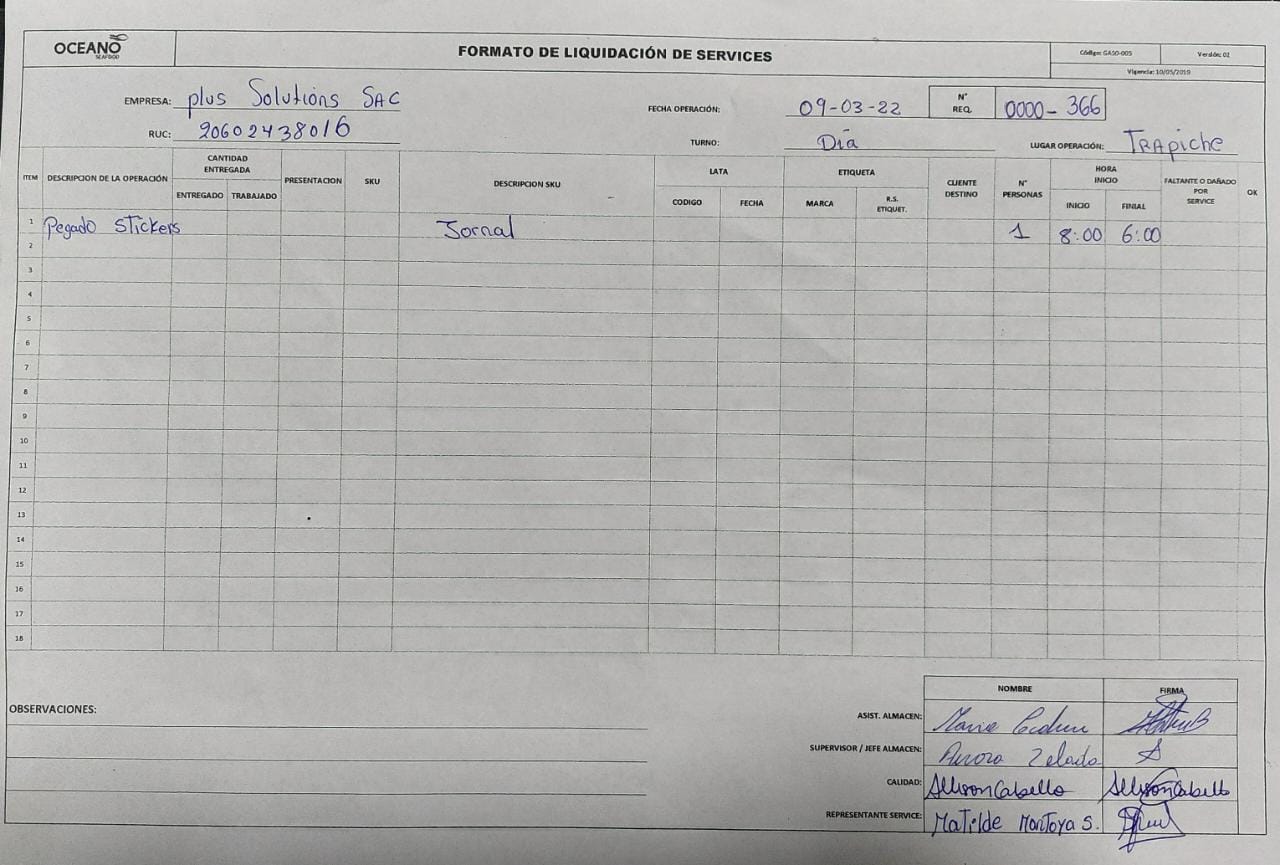 OCEANO
SEAFOOD
FORMATO DE LIQUIDACIÓN DE SERVICES
Código: GASO-005
Versión: 02
Vigencia: 10/05/2019
EMPRESA: plus Solutions SAC
FECHA OPERACIÓN: 09-03-22
N° REQ. 0000-366
RUC: 20602438016
TURNO: Día
LUGAR OPERACIÓN: TRAPiche
ITEM
DESCRIPCION DE LA OPERACIÓN
CANTIDAD ENTREGADA
ENTREGADO
TRABAJADO
PRESENTACION
SKU
DESCRIPCION SKU
LATA
CODIGO
FECHA
ETIQUETA
MARCA
R.S. ETIQUET.
CLIENTE DESTINO
N° PERSONAS
HORA INICIO
INICIO
FINIAL
FALTANTE O DAÑADO POR SERVICE
OK
1 Pegado Stickers Jornal 1 8:00 6:00
2
3
4
5
6
7
8
9
10
11
12
13
14
15
16
17
18
OBSERVACIONES:
NOMBRE
FIRMA
ASIST. ALMACEN: Maria
SUPERVISOR / JEFE ALMACEN: Aurora Zelada
CALIDAD: Allison Cabello Allison Cabello
REPRESENTANTE SERVICE: Matilde Montoya S.